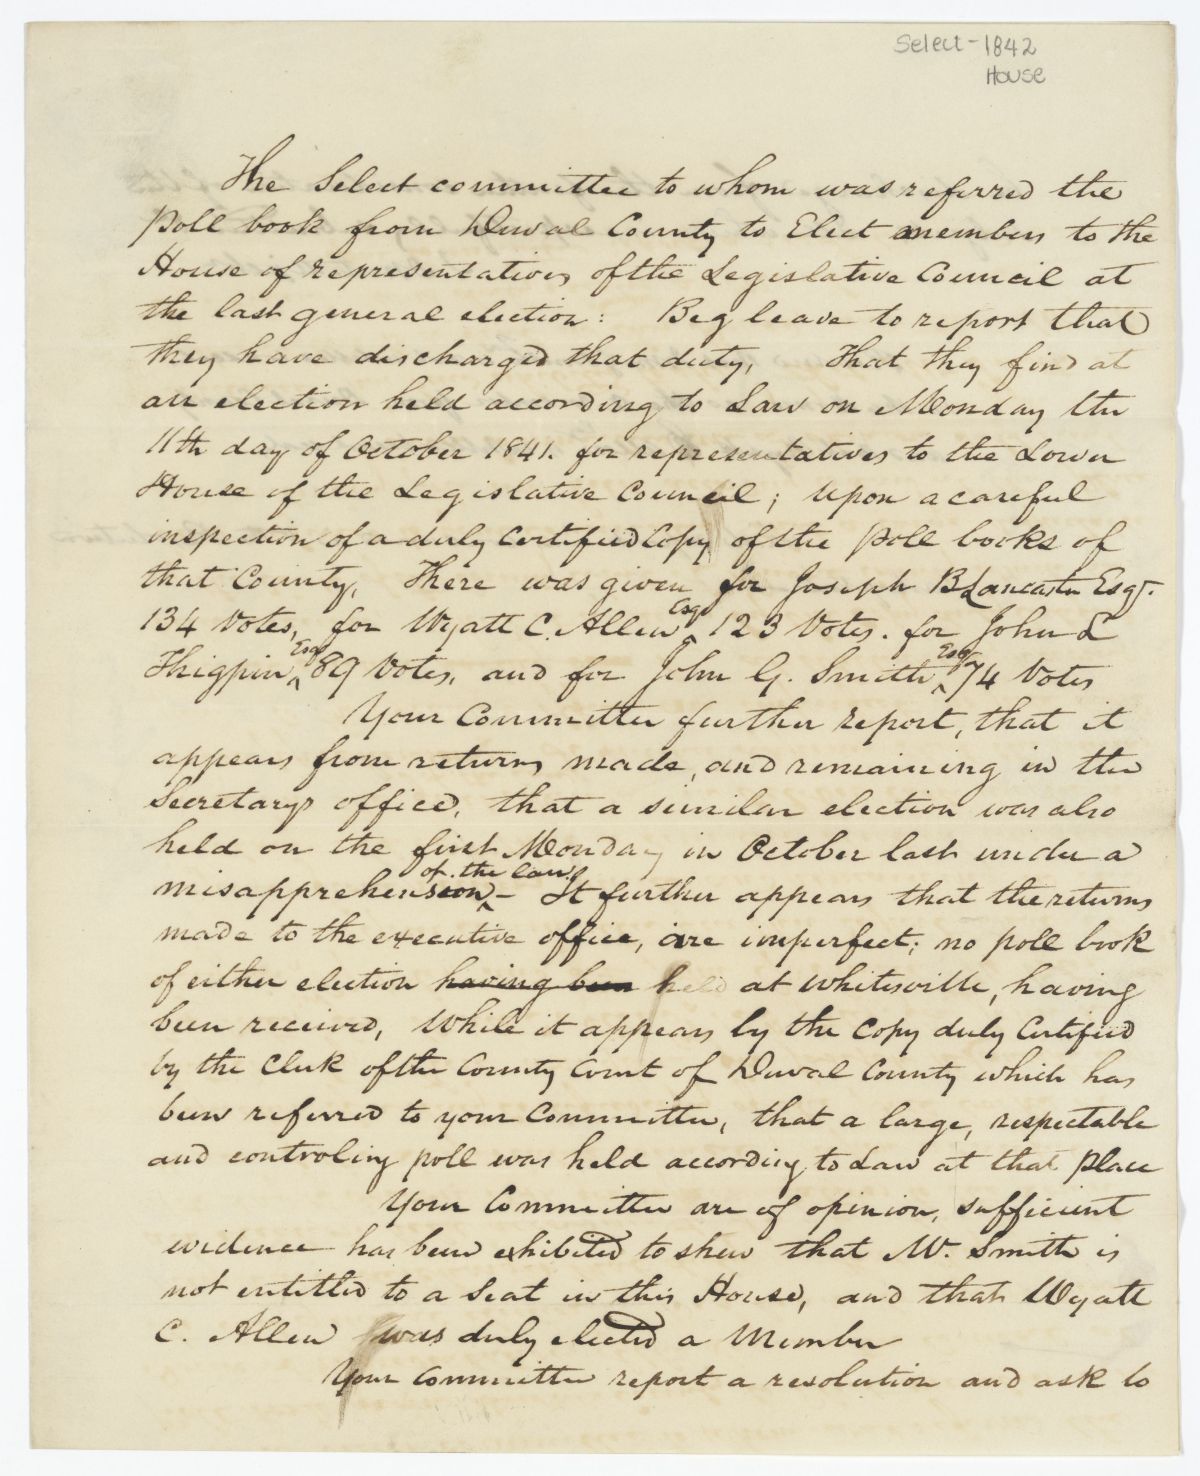 Select - 1842
House
The Select committee to whom was referred the
Poll book from Duval County to Elect members to the
House of representatives of the Legislative Council at
the last general election: Beg leave to report that
they have discharged that duty, That they find at
an election held according to Law on Monday the
11th day of October 1841. for representatives to the Lower
House of the Legislative Council; Upon a careful
inspection of a duly Certified Copy of the Poll books of
that County, There was given for Joseph B Lancaster Esqr.
134 Votes, for Wyatt C. Allen Esqr 123 Votes. for John L
Thigpin Esqr 89 Votes, and for John G. Smith Esqr 74 Votes
Your Committee further report, that it
appears from returns made, and remaining in the
Secretarys office, that a similar election was also
held on the first Monday in October last under a
misapprehension of the law, - It further appears that the returns
made to the executive office, are imperfect; no poll book
of either election having been held at Whitesville, having
been received, While it appears by the Copy duly Certified
by the Clerk of the County Court of Duval County which has
been referred to your Committee, that a large, respectable
and controling poll was held according to Law at that Place
Your Committee are of opinion, sufficient
evidence has been exhibited to shew that Mr. Smith is
not entitled to a Seat in this House, and that Wyatt
C. Allen was duly elected a Member
Your Committee report a resolution and ask to